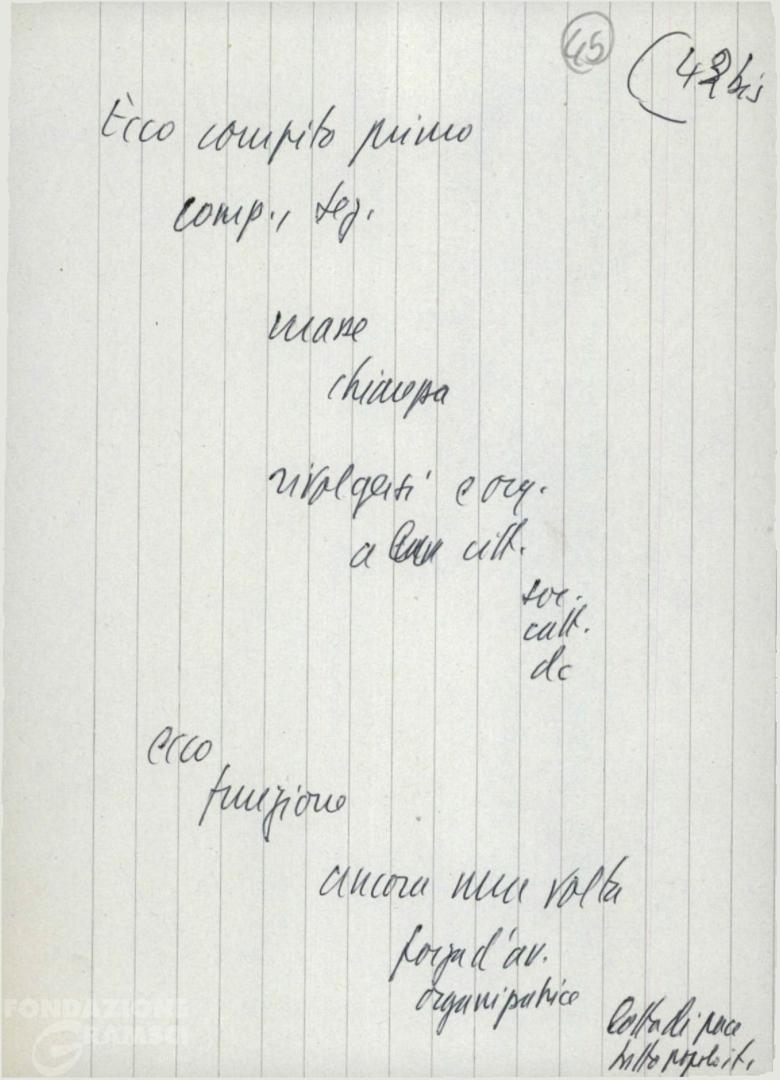 45
(42 bis
Ecco compito primo
comp., sez.
masse
chiarezza
rivolgersi e org.
a citt.
soc.
catt.
dc
ecco
funzione
ancora una volta
forza d'av.
organizzatrice
lotta di pace
tutto popolo it.
FONDAZIONE
GRAMSCI